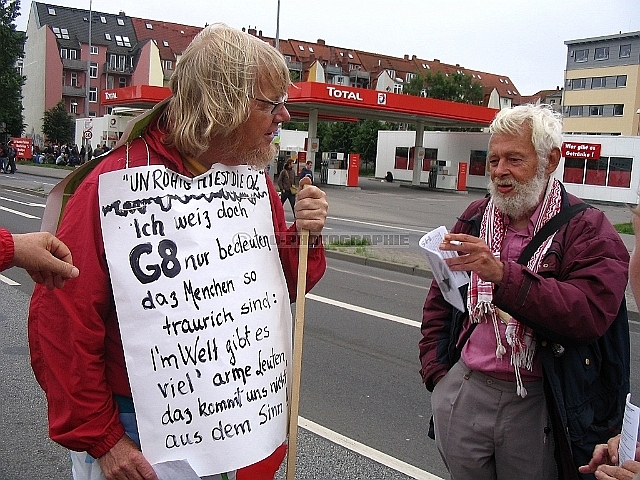 TOTAL
TOTAL
TOTAL
Getränke
"UNRUHIG IST DIE
Ich weiz doch
G8 nur bedeuten
das Menchen so
traurich sind:
I'm Welt gibt es
viel' arme Leuten,
das kommt uns nicht
aus dem Sinn!